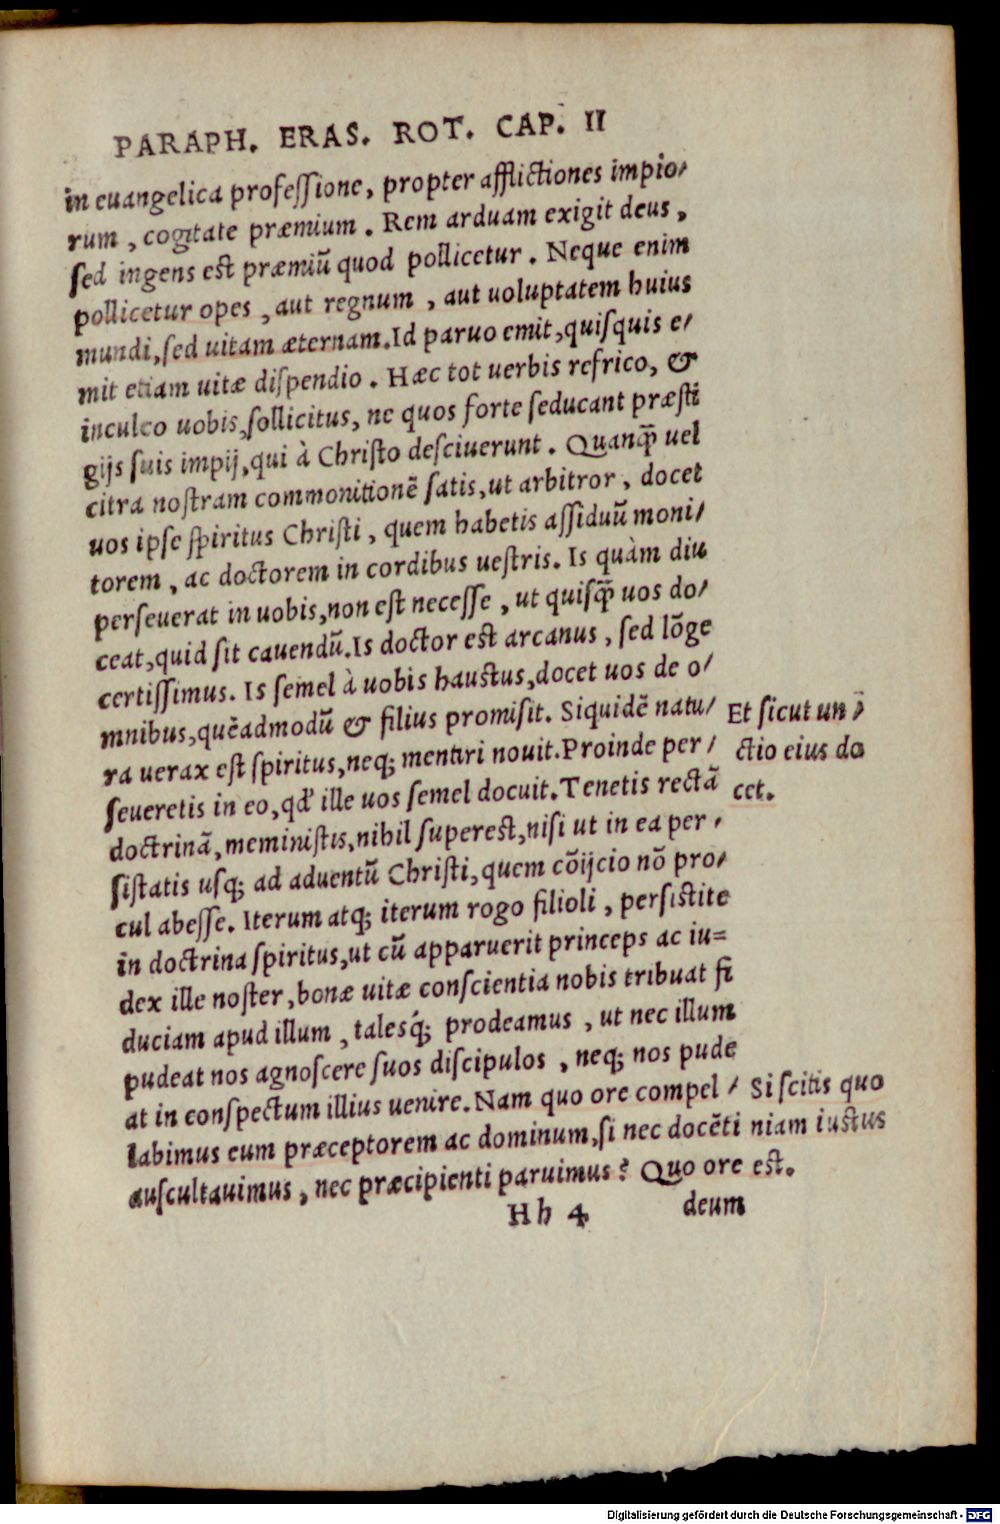 PARAPH. ERAS. ROT. CAP. II
in euangelica professione, propter afflictiones impio⸗
rum, cogitate præmium. Rem arduam exigit deus,
sed ingens est præmiũ quod pollicetur. Neque enim
pollicetur opes, aut regnum, aut uoluptatem huius
mundi, sed uitam æternam. Id paruo emit, quisquis e⸗
mit etiam uitæ dispendio. Hæc tot uerbis refrico, &
inculco uobis, sollicitus, ne quos forte seducant præsti
gijs suis impij, qui à Christo desciuerunt. Quanq̃ uel
citra nostram commonitionẽ satis, ut arbitror, docet
uos ipse spiritus Christi, quem habetis assiduũ moni⸗
torem, ac doctorem in cordibus uestris. Is quàm diu
perseuerat in uobis, non est necesse, ut quisq̃ uos do⸗
ceat, quid sit cauendũ. Is doctor est arcanus, sed lõge
certissimus. Is semel à uobis haustus, docet uos de o⸗
mnibus, quẽadmodũ & filius promisit. Siquidẽ natu⸗
ra uerax est spiritus, neq; mentiri nouit. Proinde per⸗
seueretis in eo, qd' ille uos semel docuit. Tenetis rectã
doctrinã, meministis, nihil superest, nisi ut in ea per⸗
sistatis usq; ad aduentũ Christi, quem cõijcio nõ pro⸗
cul abesse. Iterum atq; iterum rogo filioli, persistite
in doctrina spiritus, ut cũ apparuerit princeps ac iu⸗
dex ille noster, bonæ uitæ conscientia nobis tribuat fi
duciam apud illum, talesq́; prodeamus, ut nec illum
pudeat nos agnoscere suos discipulos, neq; nos pude
at in conspectum illius uenire. Nam quo ore compel⸗
labimus eum præceptorem ac dominum, si nec docẽti
auscultauimus, nec præcipienti paruimus? Quo ore
Et sicut un⸗
ctio eius do
cet.
Si scitis quo
niam iustus
est.
Hh 4
deum
Digitalisierung gefördert durch die Deutsche Forschungsgemeinschaft - DFG